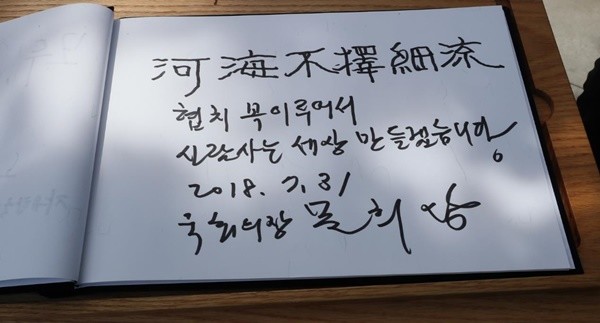 河海不擇細流
협치 꼭 이루어서
사람사는 세상 만들겠습니다.
2018. 7. 31
국회의장 문희상